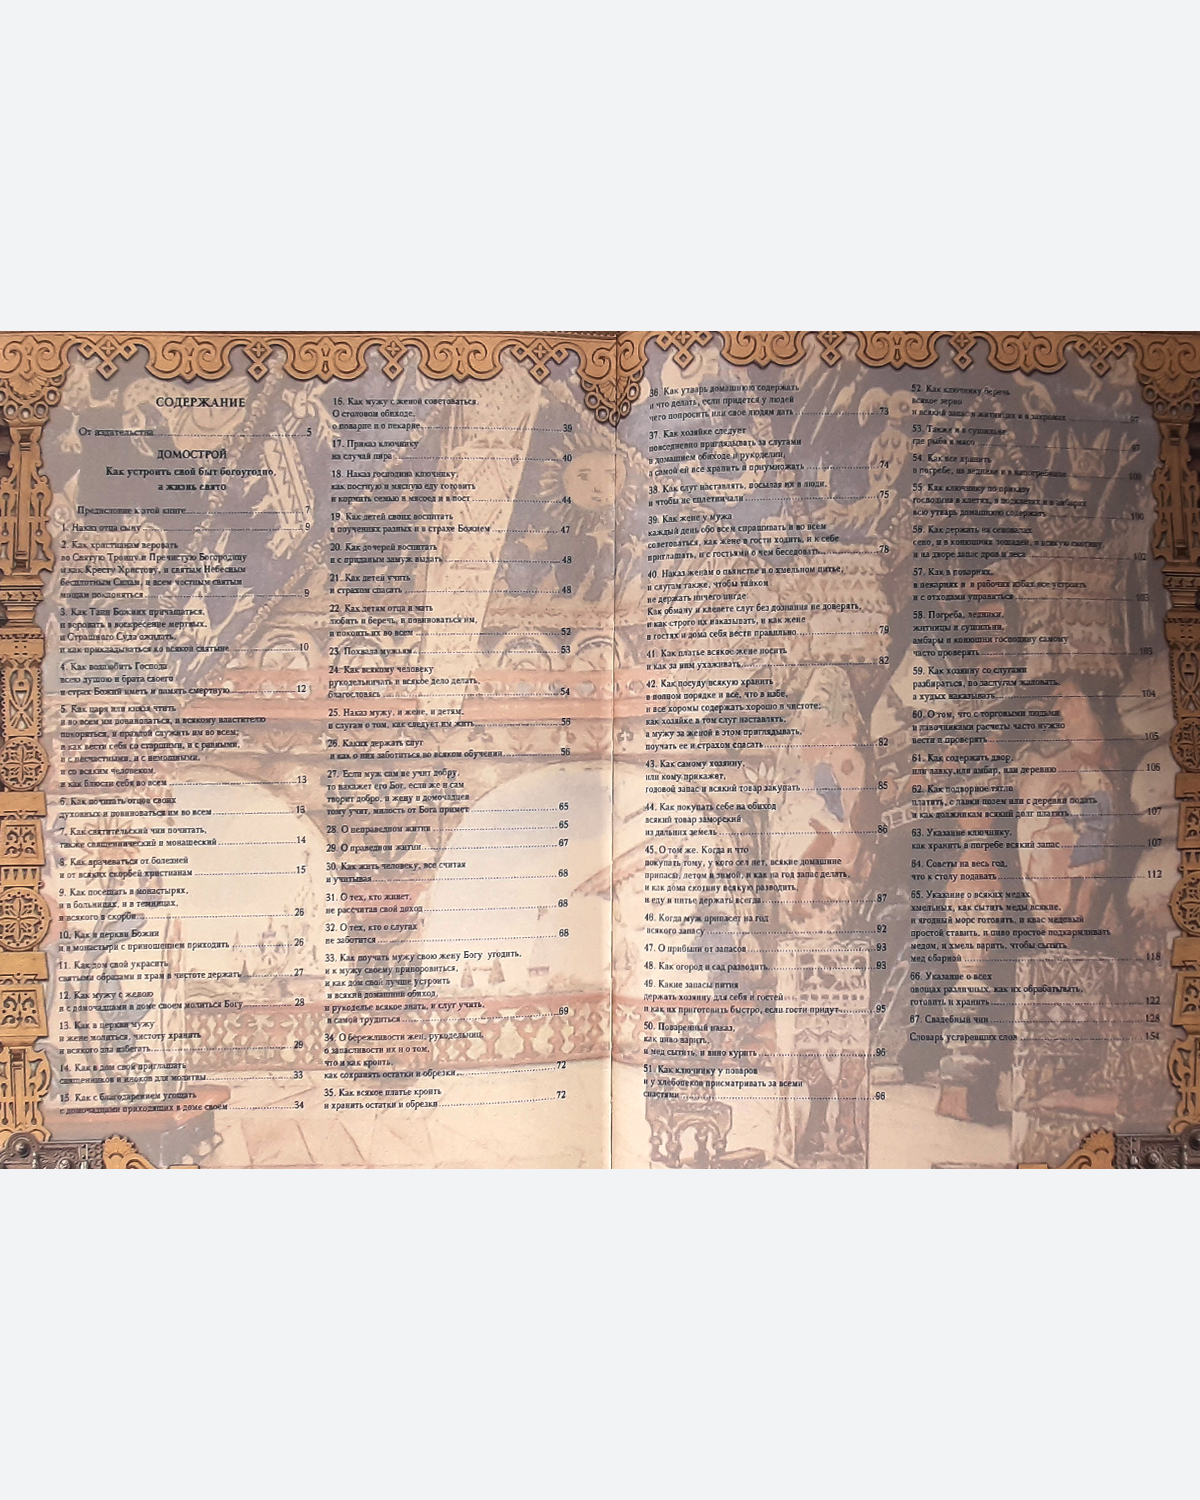 СОДЕРЖАНИЕ
От издательства 5
ДОМОСТРОЙ
Как устроить свой быт богоугодно,
а жизнь свято
Предисловие к этой книге 7
1. Наказ отца сыну 9
2. Как христианам веровать
во Святую Троицу и Пречистую Богородицу
и как Кресту Христову, и святым Небесным
бесплотным Силам, и всем честным святым
мощам поклоняться 9
3. Как Таин Божиих причащаться,
и веровать в воскресение мертвых,
и Страшного Суда ожидать,
и как прикладываться ко всякой святыне 10
4. Как возлюбить Господа
всею душою и брата своего
и страх Божий иметь и память смертную 12
5. Как царя или князя чтить
и во всем им повиноваться, и всякому властителю
покоряться, и правдой служить им во всем;
и как вести себя со старшими, и с равными,
и с несчастными, и с немощными,
и со всяким человеком,
и как блюсти себя во всем 13
6. Как почитать отцов своих
духовных и повиноваться им во всем 13
7. Как святительский чин почитать,
также священнический и монашеский 14
8. Как врачеваться от болезней
и от всяких скорбей христианам 15
9. Как посещать в монастырях,
и в больницах, и в темницах,
и всякого в скорби 26
10. Как в церкви Божии
и в монастыри с приношением приходить 26
11. Как дом свой украсить
святыми образами и храм в чистоте держать 27
12. Как мужу с женою
и с домочадцами в доме своем молиться Богу 28
13. Как в церкви мужу
и жене молиться, чистоту хранить
и всякого зла избегать 29
14. Как в дом свой приглашать
священников и иноков для молитвы 33
15. Как с благодарением угощать
с домочадцами приходящих в доме своем 34
16. Как мужу с женой советоваться.
О столовом обиходе,
о поварне и о пекарне 39
17. Приказ ключнику
на случай пира 40
18. Наказ господина ключнику,
как постную и мясную еду готовить
и кормить семью в мясоед и в пост 44
19. Как детей своих воспитать
в поучениях разных и в страхе Божием 47
20. Как дочерей воспитать
и с приданым замуж выдать 48
21. Как детей учить
и страхом спасать 48
22. Как детям отца и мать
любить и беречь, и повиноваться им,
и покоить их во всем 52
23. Похвала мужьям 53
24. Как всякому человеку
рукодельничать и всякое дело делать,
благословясь 54
25. Наказ мужу, и жене, и детям,
и слугам о том, как следует им жить 55
26. Каких держать слуг
и как о них заботиться во всяком обучении 56
27. Если муж сам не учит добру,
то накажет его Бог, если же и сам
творит добро, и жену и домочадцев
тому учит, милость от Бога примет 65
28. О неправедном житии 65
29. О праведном житии 67
30. Как жить человеку, все считая
и учитывая 68
31. О тех, кто живет,
не рассчитав свой доход 68
32. О тех, кто о слугах
не заботится 68
33. Как поучать мужу свою жену Богу угодить,
и к мужу своему приноровиться,
и как дом свой лучше устроить
и всякий домашний обиход,
и рукоделье всякое знать, и слуг учить,
и самой трудиться 69
34. О бережливости жен, рукодельниц,
о запасливости их и о том,
что и как кроить,
как сохранять остатки и обрезки 72
35. Как всякое платье кроить
и хранить остатки и обрезки 72
36. Как утварь домашнюю содержать
и что делать, если придется у людей
чего попросить или свое людям дать 73
37. Как хозяйке следует
повседневно приглядывать за слугами
в домашнем обиходе и рукоделии,
а самой ей все хранить и приумножать 74
38. Как слуг наставлять, посылая их в люди,
и чтобы не сплетничали 75
39. Как жене у мужа
каждый день обо всем спрашивать и во всем
советоваться, как жене в гости ходить, и к себе
приглашать, и с гостьями о чем беседовать 78
40. Наказ женам о пьянстве и о хмельном питье,
и слугам также, чтобы тайком
не держать ничего нигде.
Как обману и клевете слуг без дознания не доверять,
и как строго их наказывать, и как жене
в гостях и дома себя вести правильно 79
41. Как платье всякое жене носить
и как за ним ухаживать 82
42. Как посуду всякую хранить
в полном порядке и все, что в избе,
и все хоромы содержать хорошо в чистоте;
как хозяйке в том слуг наставлять,
а мужу за женой в этом приглядывать,
поучать ее и страхом спасать 82
43. Как самому хозяину,
или кому прикажет,
годовой запас и всякий товар закупать 85
44. Как покупать себе на обиход
всякий товар заморский
из дальних земель 86
45. О том же. Когда и что
покупать тому, у кого сел нет, всякие домашние
припасы, летом и зимой, и как на год запас делать,
и как дома скотину всякую разводить,
и еду и питье держать всегда 87
46. Когда муж припасет на год
всякого запасу 92
47. О прибыли от запасов 93
48. Как огород и сад разводить 93
49. Какие запасы пития
держать хозяину для себя и гостей
и как их приготовить быстро, если гости придут 95
50. Поваренный наказ,
как пиво варить,
и мед сытить, и вино курить 96
51. Как ключнику у поваров
и у хлебопеков присматривать за всеми
снастями 96
52. Как ключнику беречь
всякое зерно
и всякий запас в житницах и в закромах 97
53. Также и в сушильне
где рыба и мясо 97
54. Как все хранить
в погребе, на леднике и в напогребице 100
55. Как ключнику по приказу
господина в клетях, в подклетях и в амбарах
всю утварь домашнюю содержать 100
56. Как держать на сеновалах
сено, и в конюшнях лошадей, и всякую скотину
и на дворе запас дров и леса 102
57. Как в поварнях,
в пекарнях и в рабочих избах все устроить
и с отходами управиться 103
58. Погреба, ледники,
житницы и сушильни,
амбары и конюшни господину самому
часто проверять 103
59. Как хозяину со слугами
разбираться, по заслугам жаловать,
а худых наказывать 104
60. О том, что с торговыми людьми
и лавочниками расчеты часто нужно
вести и проверять 105
61. Как содержать двор,
или лавку, или амбар, или деревню 106
62. Как подворное тягло
платить, с лавки позем или с деревни подать
и как должникам всякий долг платить 107
63. Указание ключнику,
как хранить в погребе всякий запас 107
64. Советы на весь год,
что к столу подавать 112
65. Указание о всяких медах
хмельных, как сытить меды всякие,
и ягодный морс готовить, и квас медовый
простой ставить, и пиво простое подкармливать
медом, и хмель варить, чтобы сытить
мед обарной 118
66. Указание о всех
овощах различных, как их обрабатывать,
готовить и хранить 122
67. Свадебный чин 128
Словарь устаревших слов 154